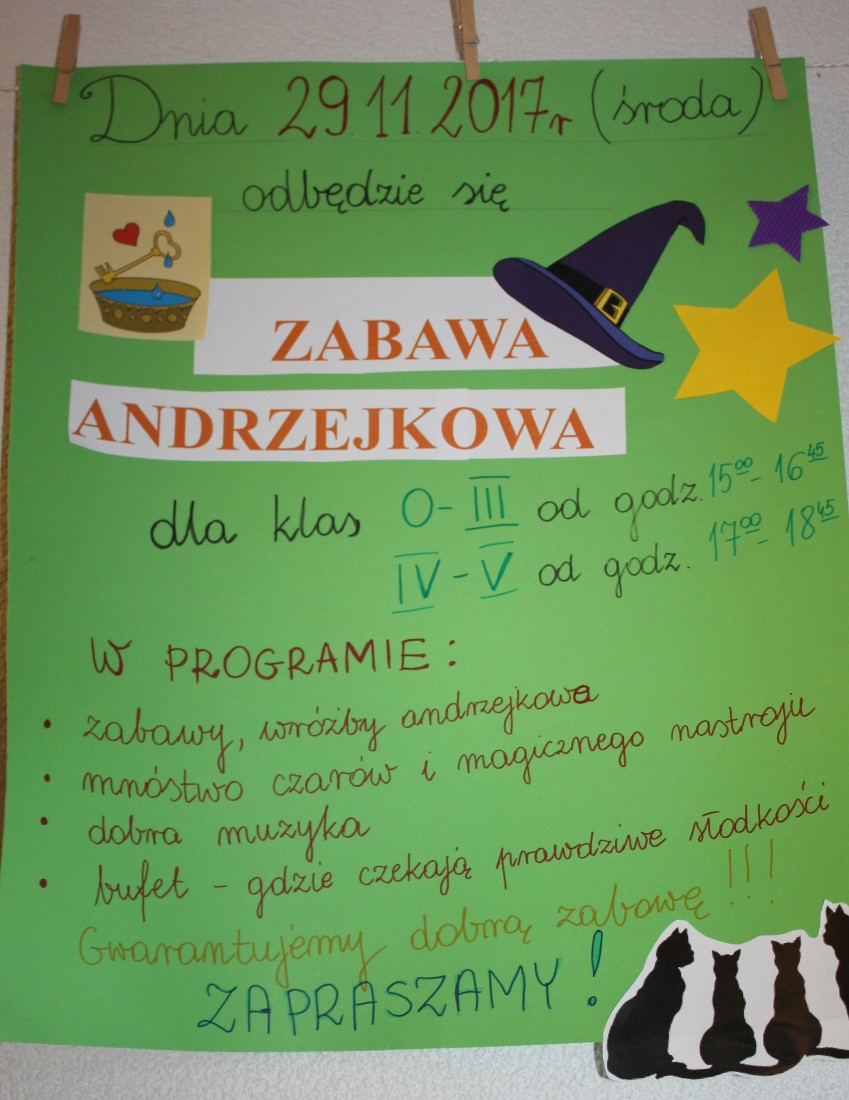 Dnia 29.11.2017r (środa)
odbędzie się
ZABAWA
ANDRZEJKOWA
dla klas 0-III od godz. 15⁰⁰- 16⁴⁵
IV - V od godz. 17⁰⁰- 18⁴⁵
W PROGRAMIE:
• zabawy, wróżby andrzejkowe
• mnóstwo czarów i magicznego nastroju
• dobra muzyka
• bufet - gdzie czekają prawdziwe słodkości
Gwarantujemy dobrą zabawę !!!
ZAPRASZAMY!